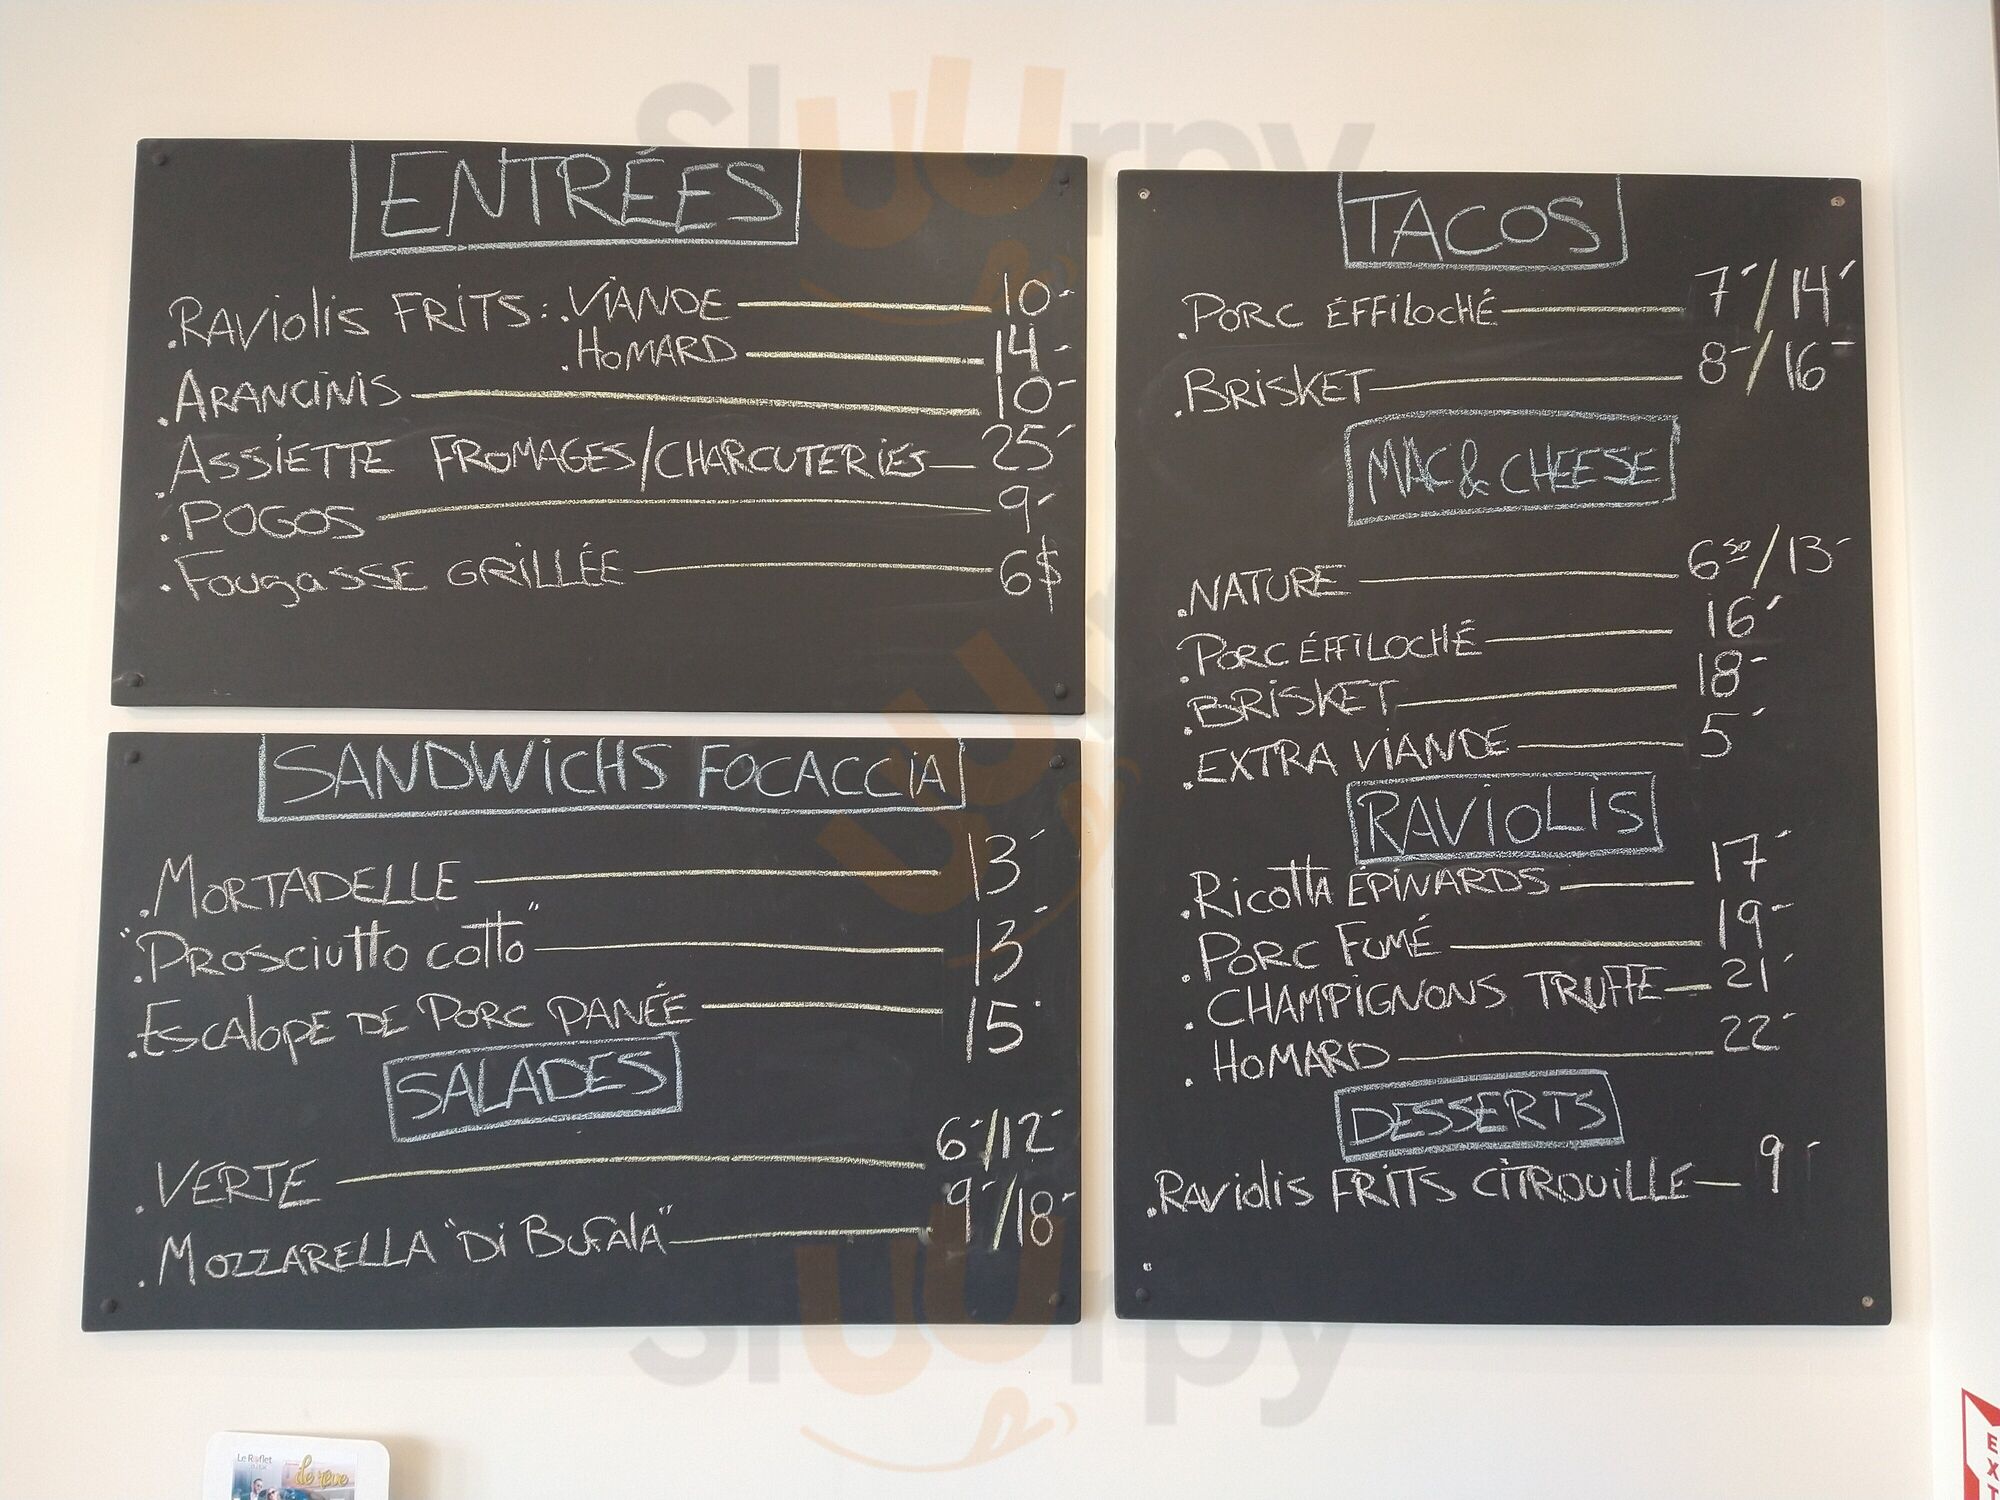 ENTRÉES
.RAViOLiS FRiTS: .ViANDE 10-
.HOMARD 14-
.ARANCiNiS 10-
.ASSiETTE FROMAGES/CHARCUTERiES 25-
.POGOS 9-
.FOUgASSE GRiLLÉE 6$
SANDWiCHS FOCACCiA
.MORTADELLE 13-
."PROSCiUTTO COTTO" 13-
.ESCALOPE DE PORC PANÉE 15-
SALADES
.VERTE 6-/12-
.MOZZARELLA "Di BUFALA" 9-/18-
TACOS
.PORC ÉFFiLOCHÉ 7-/14-
.BRiSKET 8-/16-
MAC & CHEESE
.NATURE 6 50/13-
.PORC ÉFFiLOCHÉ 16-
.BRiSKET 18-
.EXTRA ViANDE 5-
RAViOLiS
.RiCOTTA ÉPiNARDS 17-
.PORC FUMÉ 19-
.CHAMPiGNONS TRUFFE 21-
.HOMARD 22-
DESSERTS
.RAViOLiS FRiTS CiTROUiLLE 9-
.
Le Reflet
île rêve
EXT
sluurpy
sluurpy